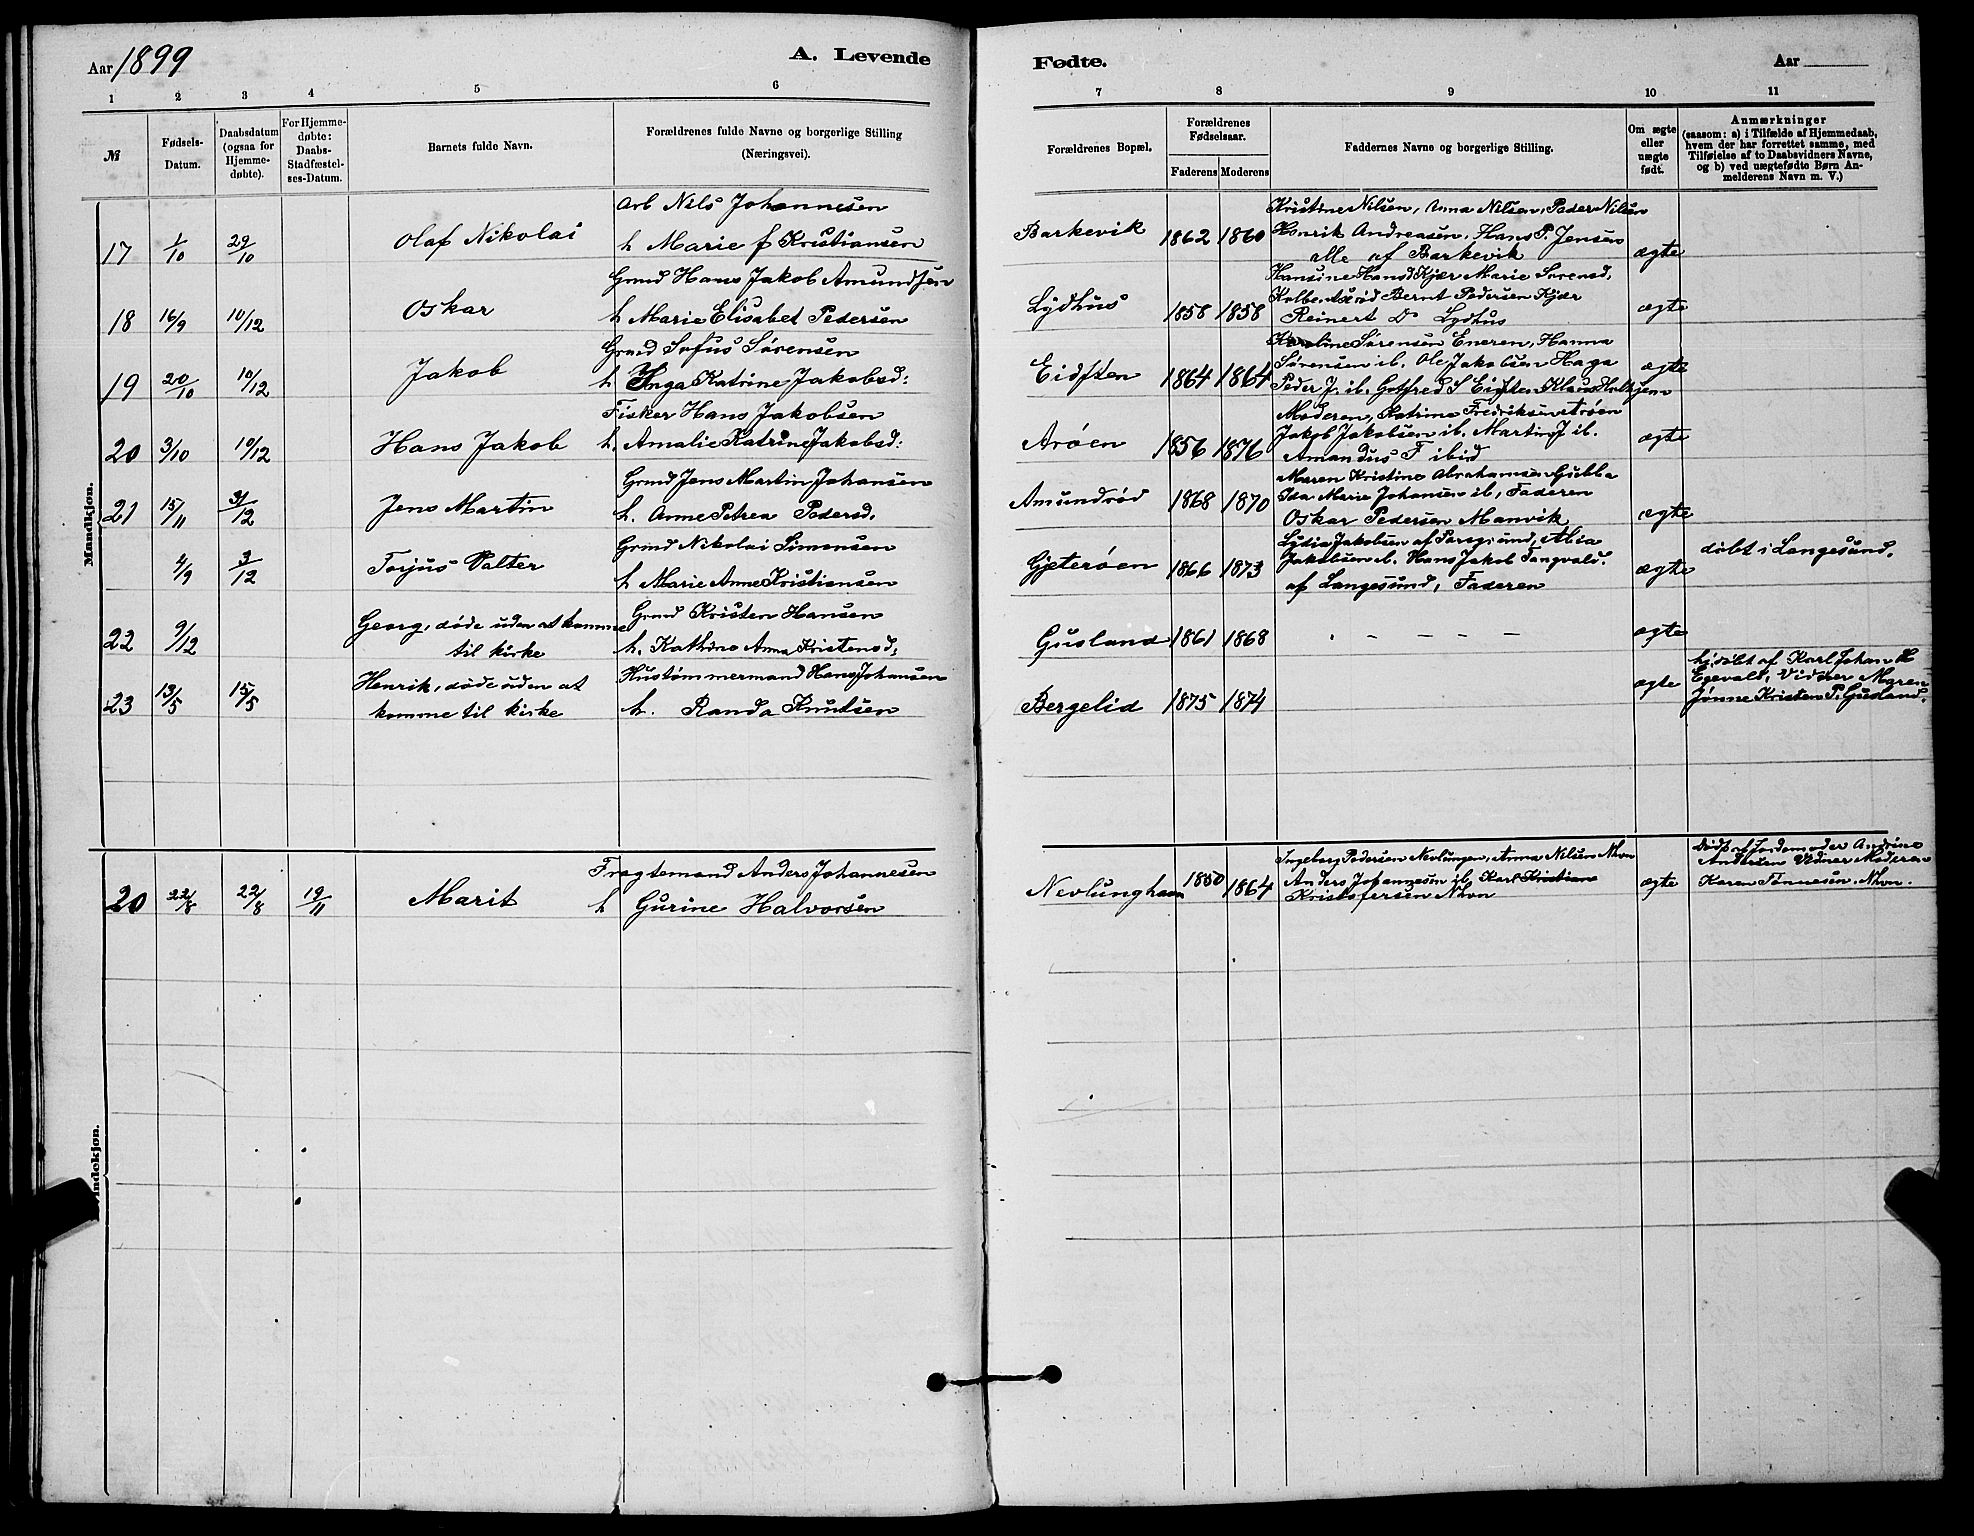 Aar 1899
A. Levende
Fødte.
Aar
1 2 3 4 5 6 7 8 9 10 11
№
Fødsels-Datum.
Daabsdatum (ogsaa for Hjemme-døbte).
For Hjemme-døbte: Daabs-Stadfæstel-ses-Datum.
Barnets fulde Navn.
Forældrenes fulde Navne og borgerlige Stilling
(Næringsvei).
Forældrenes Bopæl.
Forældrenes Fødselsaar.
Faderens Moderens
Faddernes Navne og borgerlige Stilling.
Om ægte eller uægte født.
Anmærkninger
(saasom: a) i Tilfælde af Hjemmedaab,
hvem der har forrettet samme, med
Tilføielse af to Daabsvidners Navne,
og b) ved uægtefødte Børn An-
melderens Navn m. V.)
Mandkjøn.
17 1/10 29/10 Olaf Nikolai
Arb Nils Johannesen
h Marie f Kristiansen
Barkevik 1862 1860
Kristine Nilsen, Anna Nilsen, Peder Nilsen
Henrik Andreasen, Hans P. Jensen
alle af Barkevik
ægte
18 16/9 10/12 Oskar
Grmd Hans Jakob Amundsen
h Marie Elisabet Pedersen
Lydhus 1858 1858
Hansine Hansd Kjær Marie Sørensd,
Kolbo, Bernt Pedersen Kjær
Reinert Do Lydhus
ægte
19 20/10 10/12 Jakob
Grmd Sofus Sørensen
h Inga Katrine Jakobsd:
Eidsten 1864 1864
Karoline Sørensen Eneren, Hanna
Sørensen ib. Ole Jakobsen Haga
Peder J. ib. Gotfred S Eidsten Klaus
ægte
20 3/10 10/12 Hans Jakob
Fisker Hans Jakobsen
h. Amalie Katrine Jakobsd:
Arøen 1856 1876
Moderen, Katrine Fredriksen Arøen
Jakob Jakobsen ib. Martin J ib.
Amandus F ibid
ægte
21 15/11 3/12 Jens Martin
Grmd Jens Martin Johansen
h. Anne Petrea Pedersd,
Amundrød 1868 1870
Maren Kristine Abrahamsen Gubba
Ida Marie Johansen ib, Faderen
Oskar Pedersen Manvik
ægte
4/9 3/12 Torjus Valter
Grmd Nikolai Simensen
h Marie Anne Kristiansen
Gjeterøen 1866 1873
Lydia Jakobsen af Porsgrund,
Jakobsen ib. Hans Jakob Tangvald.
af Langesund, Faderen
ægte
døbt i Langesund.
22 9/12 Georg, døde uden at komme
til kirke
Grmd Kristen Hansen
h. Kathrine Anna Kristensd,
Gusland 1861 1868
- - - - -
ægte
23 13/5 15/5 Henrik, døde uden at
komme til kirke
Hustømmermand Hans Johansen
h. Randa Knutsen
Bergelid 1875 1874
ægte
hjdøbt af Karl Johan H
Egevald, Vidner Maren
Jønne Kristen P. Gusland.
Kvindekjøn.
20 22/8 22/8 19/11 Marit
Fragtemand Anders Johannesen
h Gurine Halvorsen
Nevlunghavn 1850 1864
Ingeborg Pedersen Nevlungen, Anna Nilsen Nhvn
Anders Johannesen ib, Karl Kristian
Kristofersen Nhvn
ægte
Døbt af Jordemoder Andrine
Andersen Vidner Moderen
Karen Tønnesen. Nhvn.